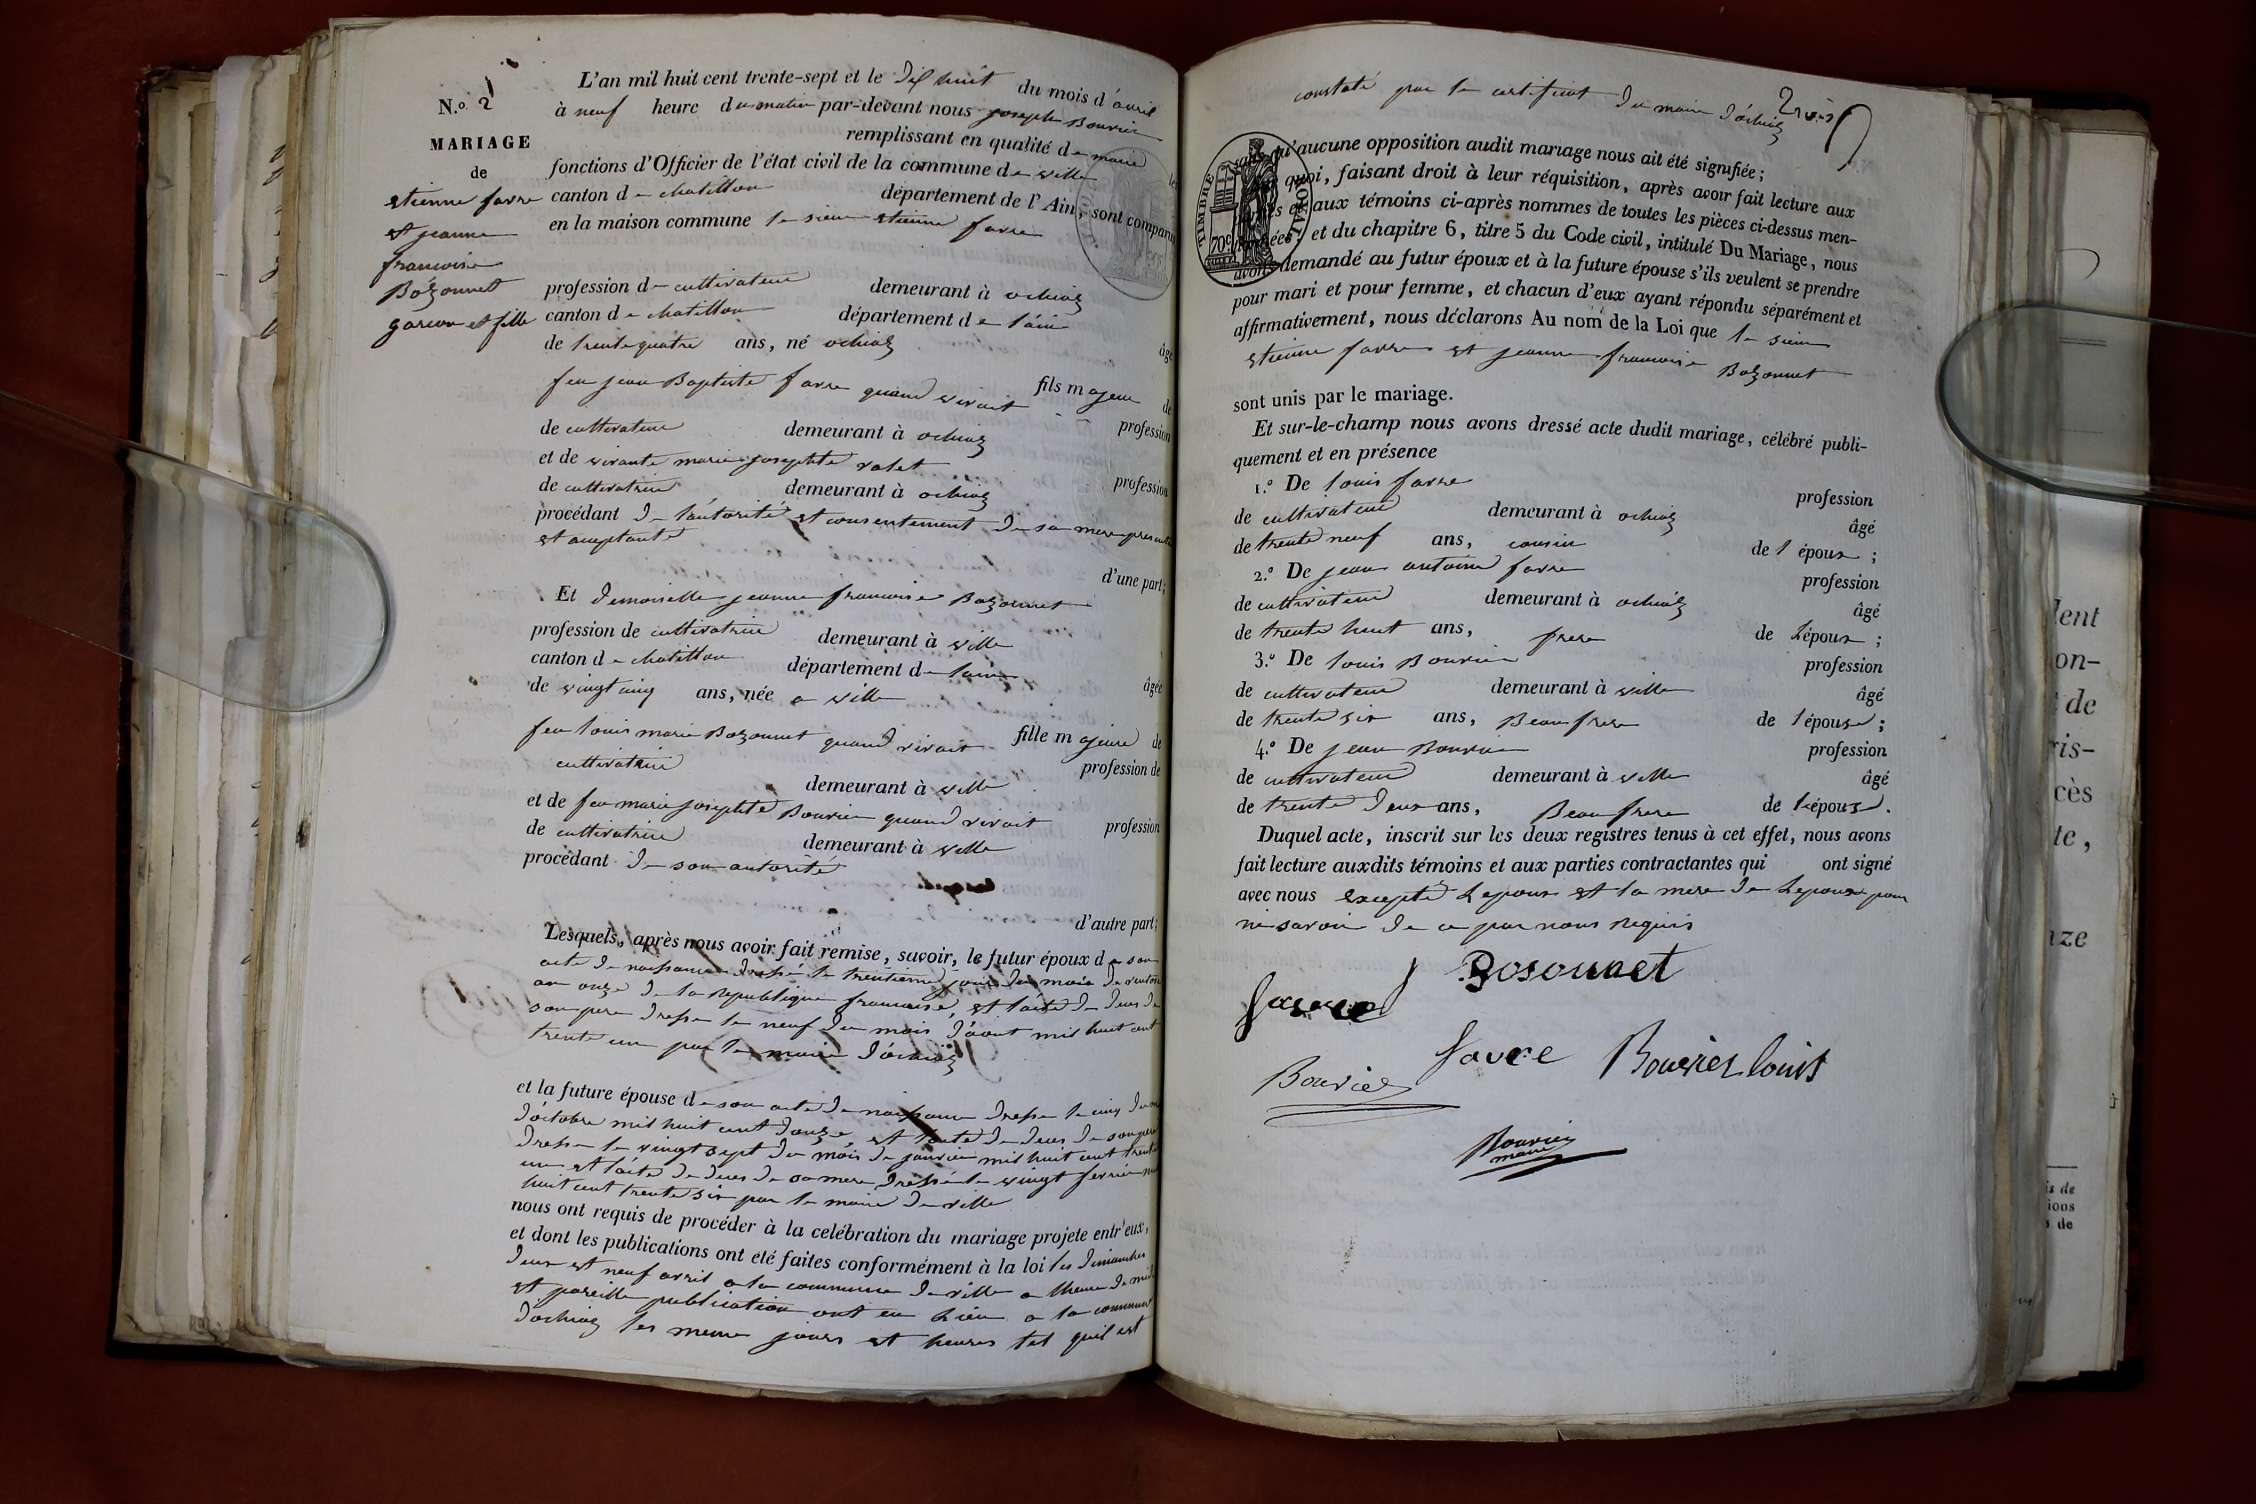 N.º 2
MARIAGE
de
etienne favre
et jeanne
francoise
Bozonnet
garcon et fille
L'an mil huit cent trente-sept et le dix huit du mois d'avril
à neuf heure du matin par-devant nous joseph Bouvier
remplissant en qualité de maire les
fonctions d'Officier de l'état civil de la commune de ville
canton de chatillon département de l'Ain, sont comparus
en la maison commune le sieur etienne favre
profession de cultivateur demeurant à ochiaz
canton de chatillon département de l'ain
âgé
de trente quatre ans, né ochiaz
fils majeur de
feu jean Baptiste favre quand vivait profession
de cultivateur demeurant à ochiaz
et de vivante marie josephte ralet profession
de cultivatrice demeurant à ochiaz
procédant de l'autorité et consentement de sa mere presente
et aceptante
d'une part;
Et demoiselle jeanne francoise Bozonnet
profession de cultivatrice demeurant à ville
canton de chatillon département de lain
âgée
de vingt cinq ans, née a ville
fille majeure de
feu louis marie Bozonnet quand vivait profession de
cultivatrice demeurant à ville
et de feu marie josephte Bouvier quand vivait profession
de cultivatrice demeurant à ville
procédant de son autorité
d'autre part;
Lesquels, après nous avoir fait remise, savoir, le futur époux de son
acte de naissance dressé le trentieme jour du mois de ventose
an onze de la republique francaise, et l'acte de deces de
son pere dresse le neuf du mois d'août mil huit cent
trente un par le maire d'ochiaz
et la future épouse de son acte de naissance dresse le cinq du mois
d'octobre mil huit cent douze, et l'acte de deces de son pere
dresse le vingt sept du mois de janvier mil huit cent trente
un et l'acte de deces de sa mere dressé le vingt fevrier mil
huit cent trente six par le maire de ville
nous ont requis de procéder à la celébration du mariage projete entr'eux,
et dont les publications ont eté faites conformément à la loi les dimanches
deux et neuf avril a la commune de ville a lheure de midi
et pareille publication ont eu lieu a la commune
d'ochiaz les meme jours et heures tel quil est
constaté par le certificat du maire d'ochiaz
sans qu'aucune opposition audit mariage nous ait été signifiée;
quoi, faisant droit à leur réquisition, après avoir fait lecture aux
aux témoins ci-après nommes de toutes les pièces ci-dessus men-
et du chapitre 6, titre 5 du Code civil, intitulé Du Mariage, nous
avons demandé au futur époux et à la future épouse s'ils veulent se prendre
pour mari et pour femme, et chacun d'eux ayant répondu séparément et
affirmativement, nous déclarons Au nom de la Loi que le sieur
etienne favre et jeanne francoise Bozonnet
TIMBRE ROYAL
70c
sont unis par le mariage.
Et sur-le-champ nous avons dressé acte dudit mariage, célébré publi-
quement et en présence
1.º De louis favre profession
de cultivateur demeurant à ochiaz âgé
de trente neuf ans, cousin de l'époux;
2.º De jean antoine favre profession
de cultivateur demeurant à ochiaz âgé
de trente huit ans, frere de l'époux;
3.º De louis Bouvier profession
de cultivateur demeurant à ville âgé
de trente six ans, Beau frere de l'épouse;
4.º De jean Bouvier profession
de cultivateur demeurant à ville âgé
de trente deux ans, Beau frere de l'épouse.
Duquel acte, inscrit sur les deux registres tenus à cet effet, nous avons
fait lecture auxdits témoins et aux parties contractantes qui ont signé
avec nous excepté l'epoux et la mere de l'epoux pour
ne savoir de ce par nous requis
J Bosonnet
favre
favre Bouvier louis
Bouvier
Bouvier
maire
lent
on-
de
ris-
cès
te,
nze
is de
ions
s de